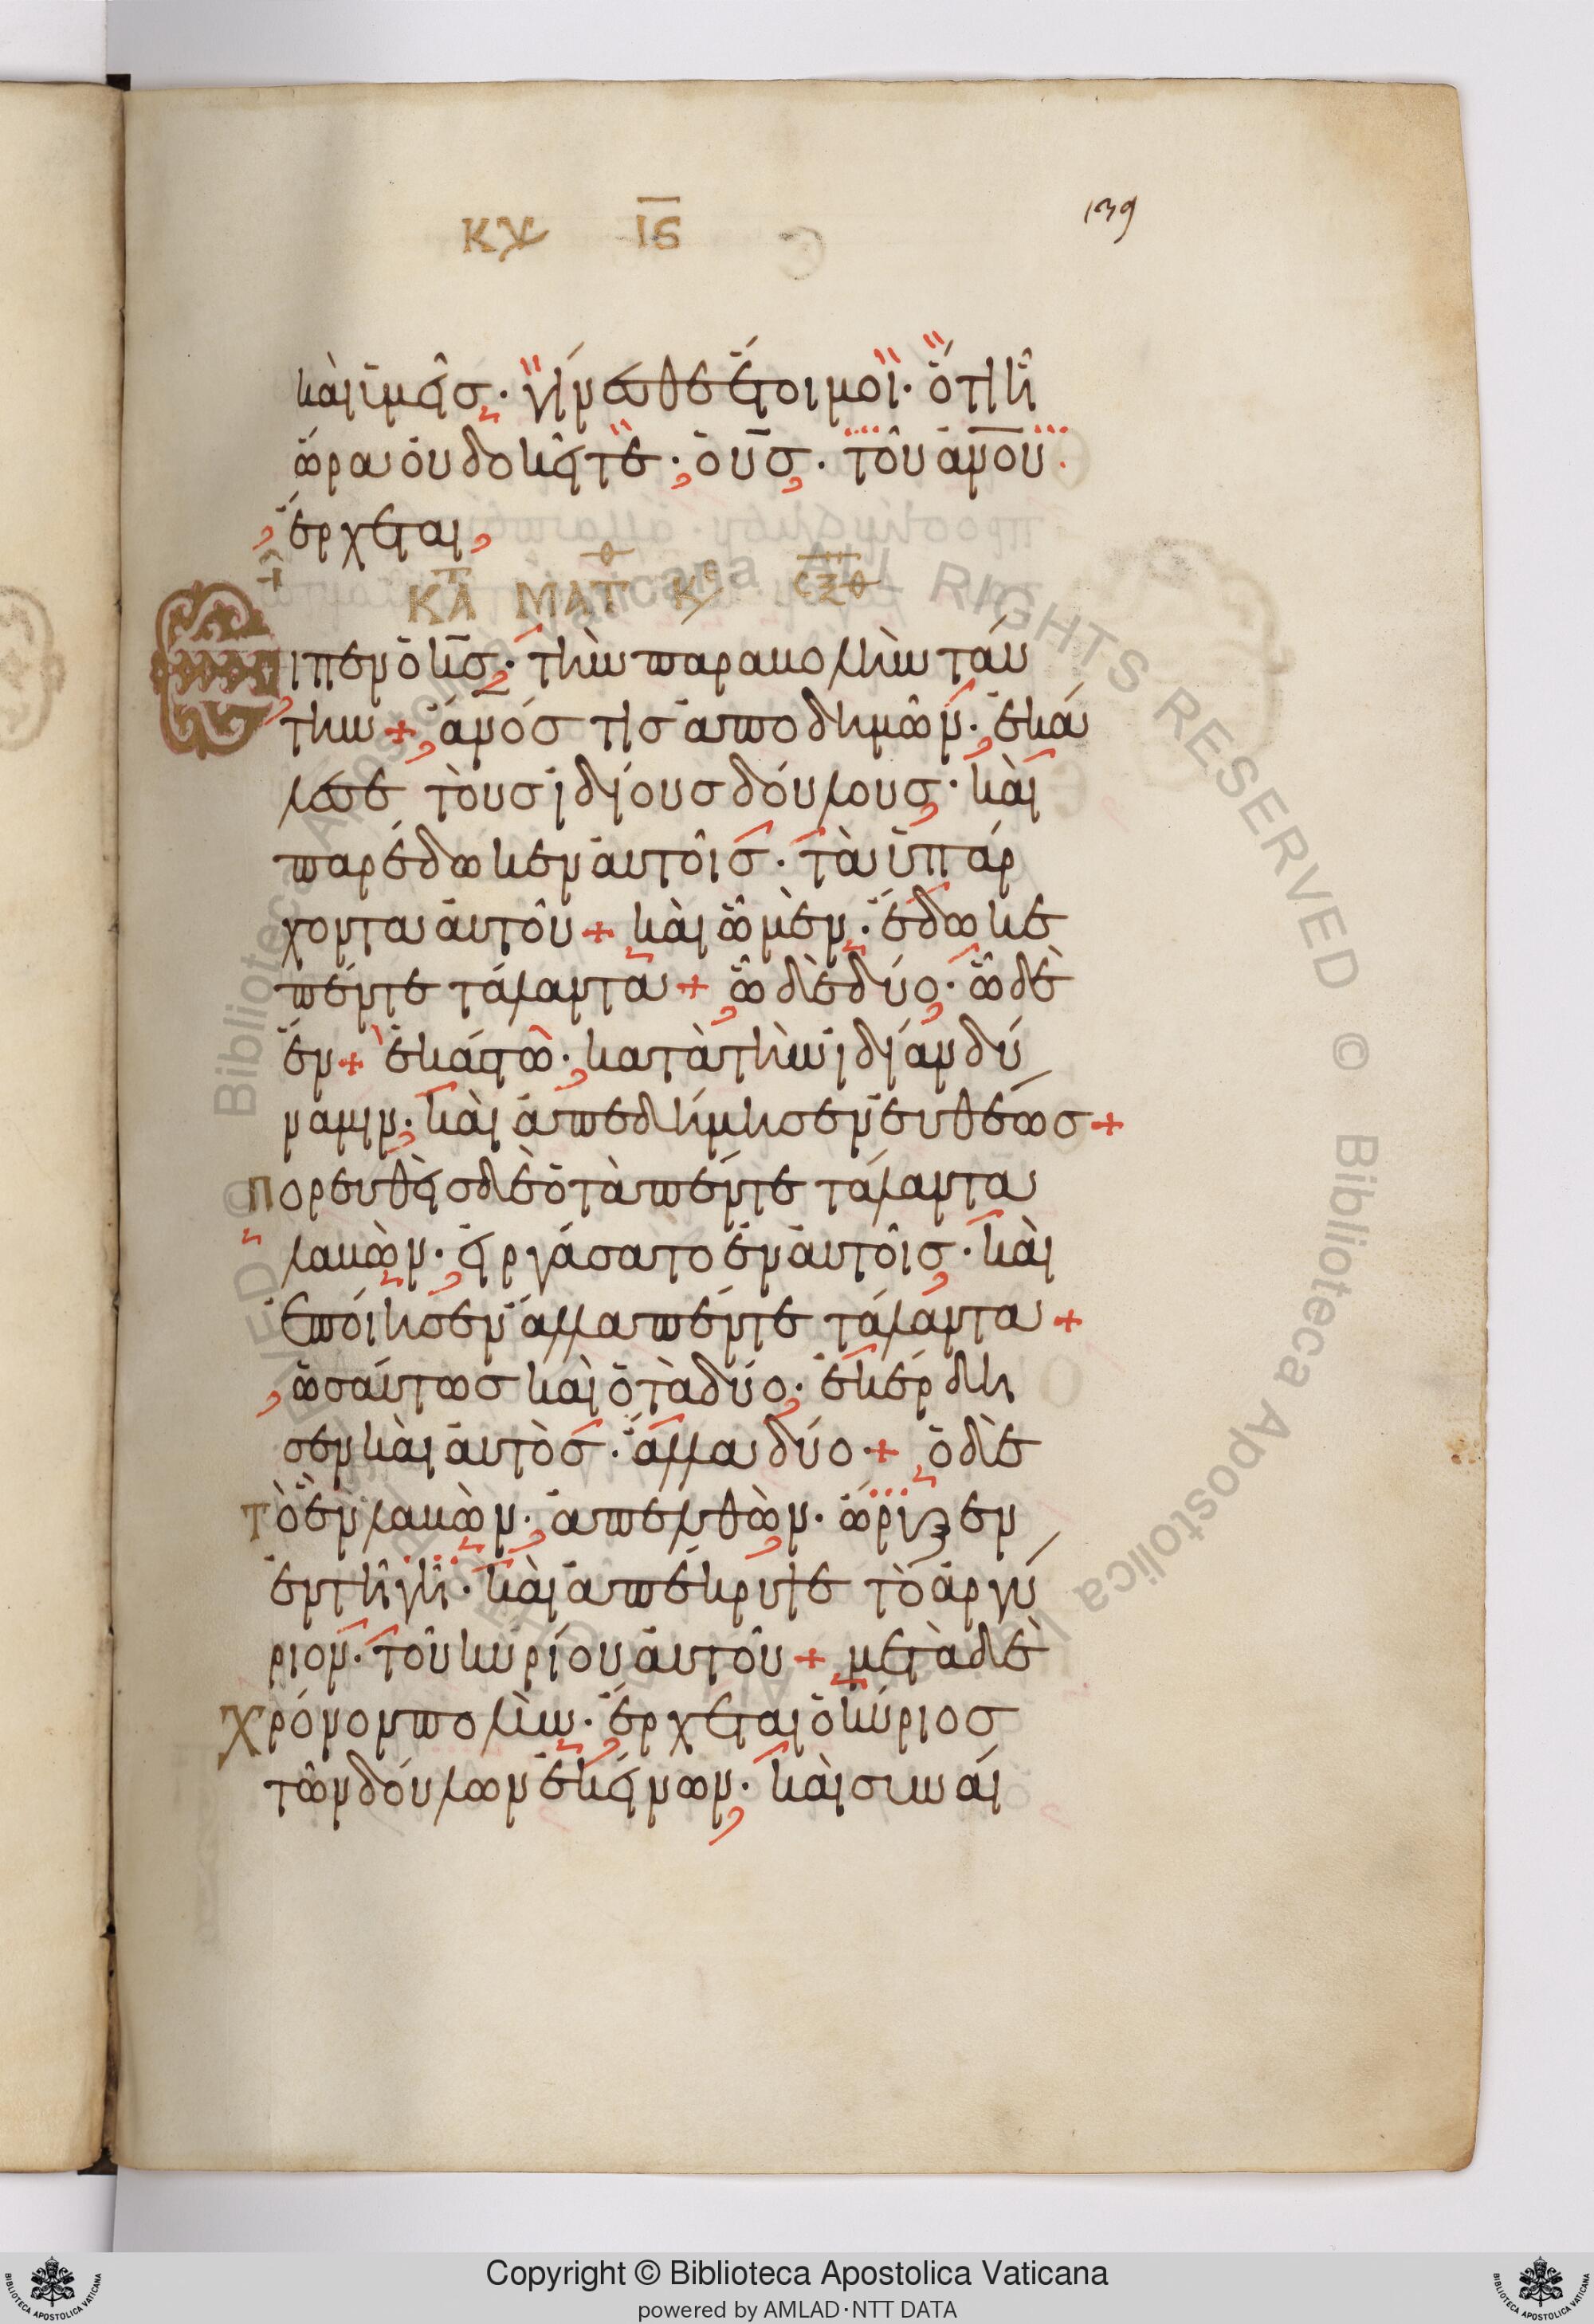 ΚΥ ΙϚ
139
καὶ ὑμεῖς· γίνεσθε ἕτοιμοι· ὅτι ἧ
ὥρα οὐ δοκεῖτε· ὁ υσ· τοῦ ανου
ἔρχεται
ΚΑ ΜΑΤΘ ΚΕ
ιπεν ὁ κσ· τὴν παραβολὴν ταύ
την + ανόσ τισ ἀποδημῶν· ἐκά
λεσε τοὺσ ἰδίουσ δούλουσ· καὶ
παρέδωκεν αὐτοῖσ· τὰ ὑπάρ
χοντα αὐτοῦ + καὶ ὧ μὲν· ἔδωκε
πέντε τάλαντα + ὧ δὲ δύο· ὧ δὲ
ἕν + ἑκάστω· κατὰ τὴν ἰδίαν δύ
ναμιν· καὶ ἀπεδήμησεν εὐθέωσ +
Πορευθεὶσ δὲ ὁ τὰ πέντε τάλαντα
λαβὼν· εἰργάσατο ἐν αὐτοῖσ· καὶ
ἐποίησεν ἄλλα πέντε τάλαντα +
ὡσαύτωσ καὶ ὁ τὰ δύο· ἐκέρδη
σεν καὶ αὐτὸσ· ἄλλα δύο + ὁ δὲ
Τὸ ἓν λαβὼν· ἀπελθὼν· ὤρυξεν
ἐν τῆ γῆ· καὶ ἀπέκρυψε τὸ ἀργύ
ριον· τοῦ κυρίου αὐτοῦ + μετὰ δὲ
Χρόνον πολὺν· ἔρχεται ὁ κύριοσ
τῶν δούλων ἐκείνων· καὶ συναί
Copyright © Biblioteca Apostolica Vaticana
powered by AMLAD·NTT DATA